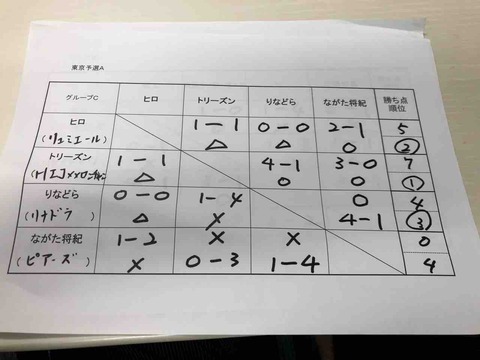 東京予選A
グループC ヒロ トリーズン りなどら ながた将紀 勝ち点
順位
ヒロ 1-1 0-0 2-1 5
(リュミエール) △ △ 0 ②
トリーズン 1-1 4-1 3-0 7
△ 0 0 ①
りなどら 0-0 1-4 0 4
(リナドラ) △ × 4-1 ③
ながた将紀 1-2 × × 0
(ピアーズ) × 0-3 1-4 4